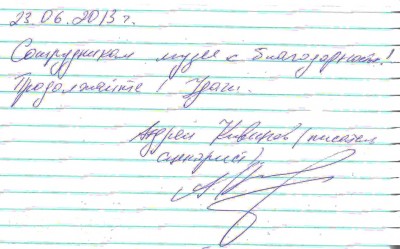 23.06.2013 г.
Сотрудникам музея с благодарностью!
Продолжайте! Удачи.
Андрей Кивинов /писатель
сценарист/